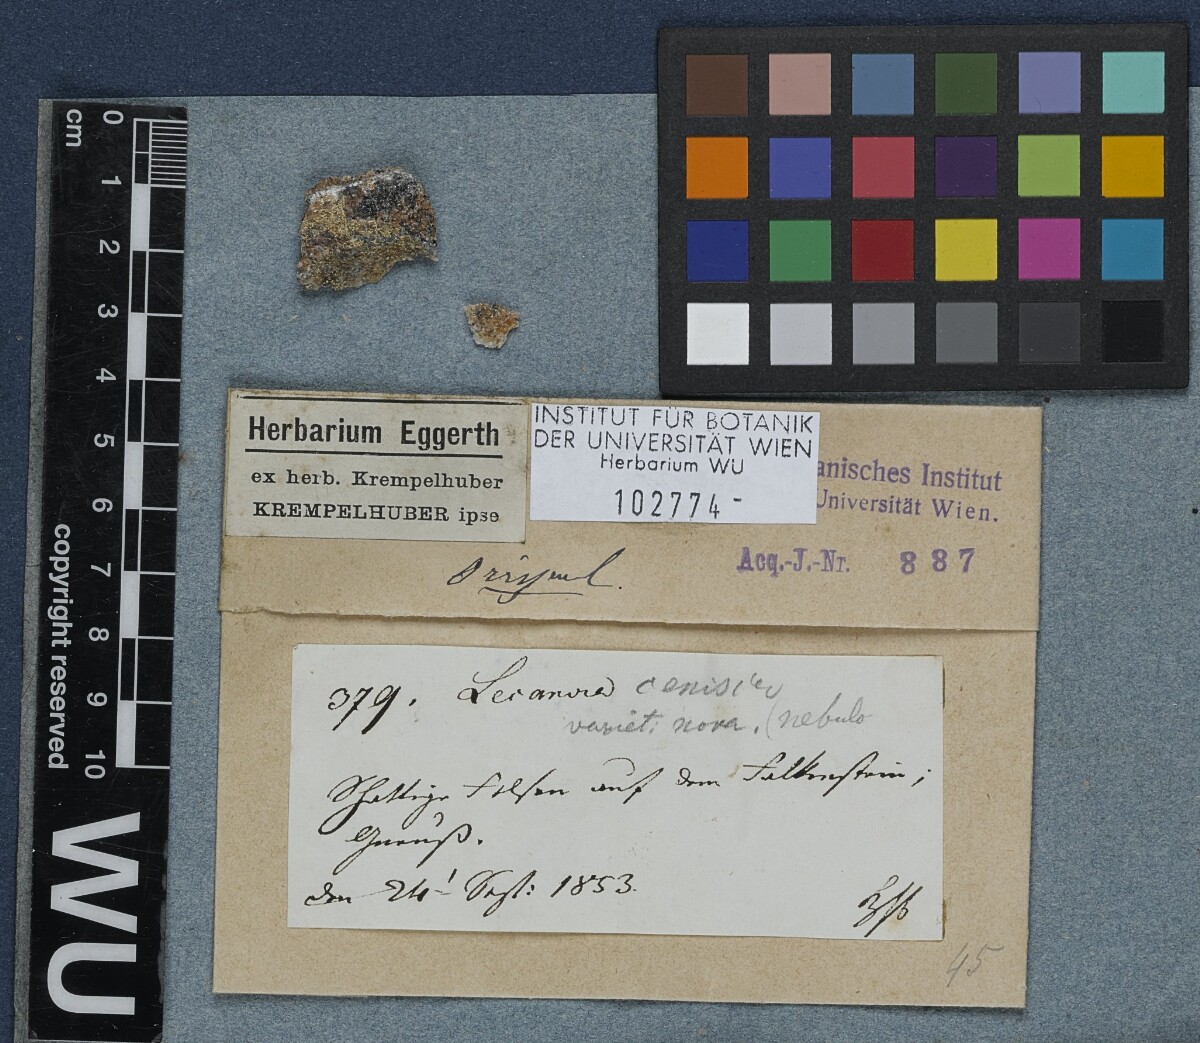 cm
0
1
2
3
4
5
6
7
8
9
10
copyright reserved
WU
Herbarium Eggerth
ex herb. Krempelhuber
KREMPELHUBER ipse
INSTITUT FÜR BOTANIK
DER UNIVERSITÄT WIEN
Herbarium WU
102774 -
anisches Institut
Universität Wien.
Acq.-J.-Nr. 887
Original.
379. Lecanora cenisia
variet: nova. (nebulo
Schattige Felsen auf dem Falkenstein;
Gneuß.
den 24' Sept: 1853.
45